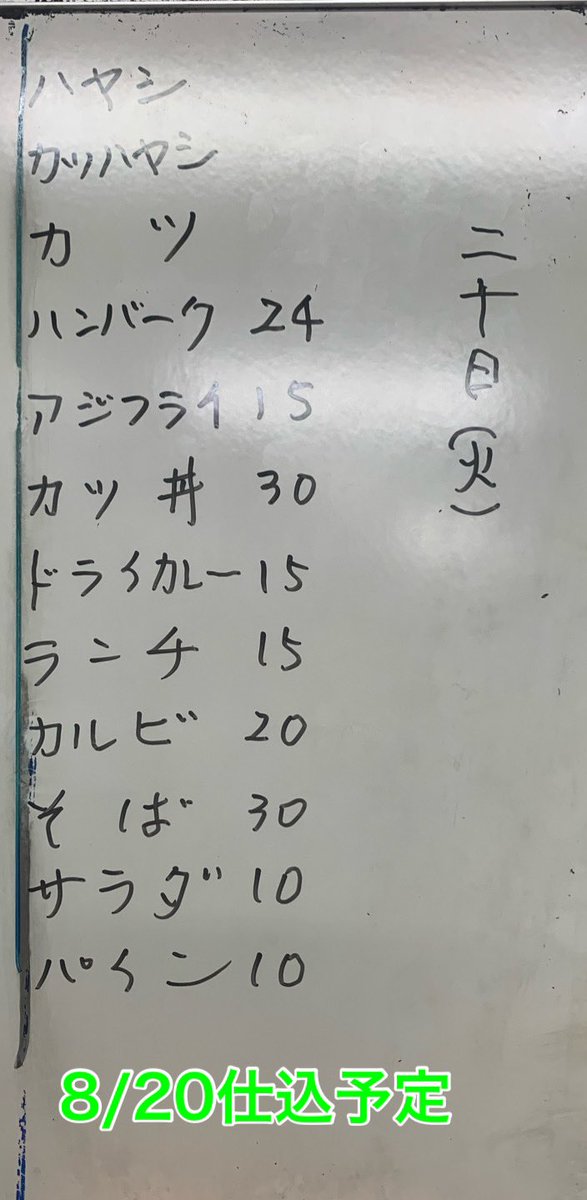 二十日(火)
ハヤシ
カツハヤシ
カツ
ハンバーク 24
アジフライ 15
カツ丼 30
ドライカレー 15
ランチ 15
カルビ 20
そば 30
サラダ 10
パイン 10
8/20仕込予定